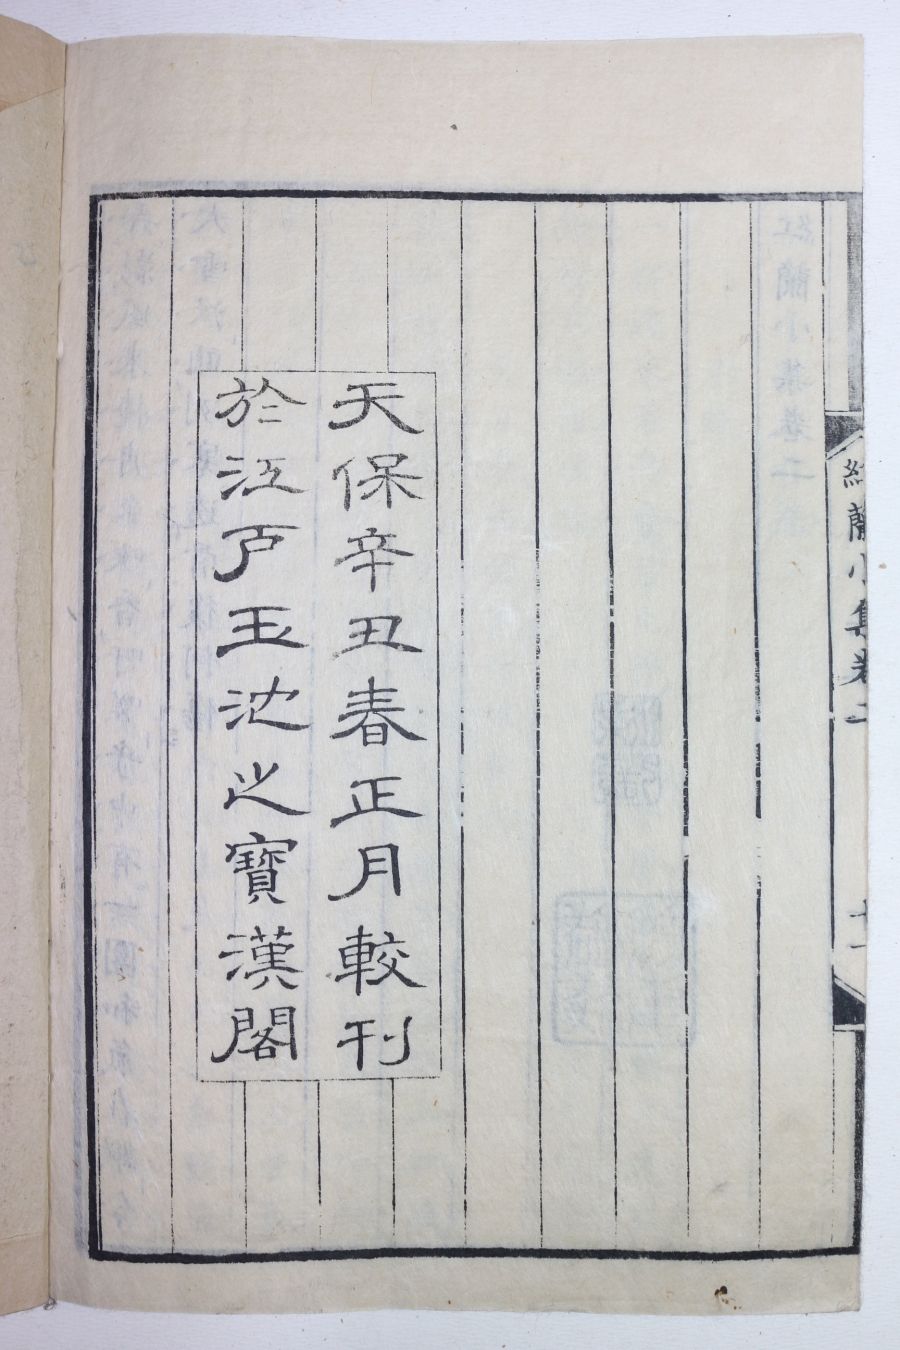 紅蘭小集卷二
十一
天保辛丑春正月較刊
於江戸玉池之寶漢閣